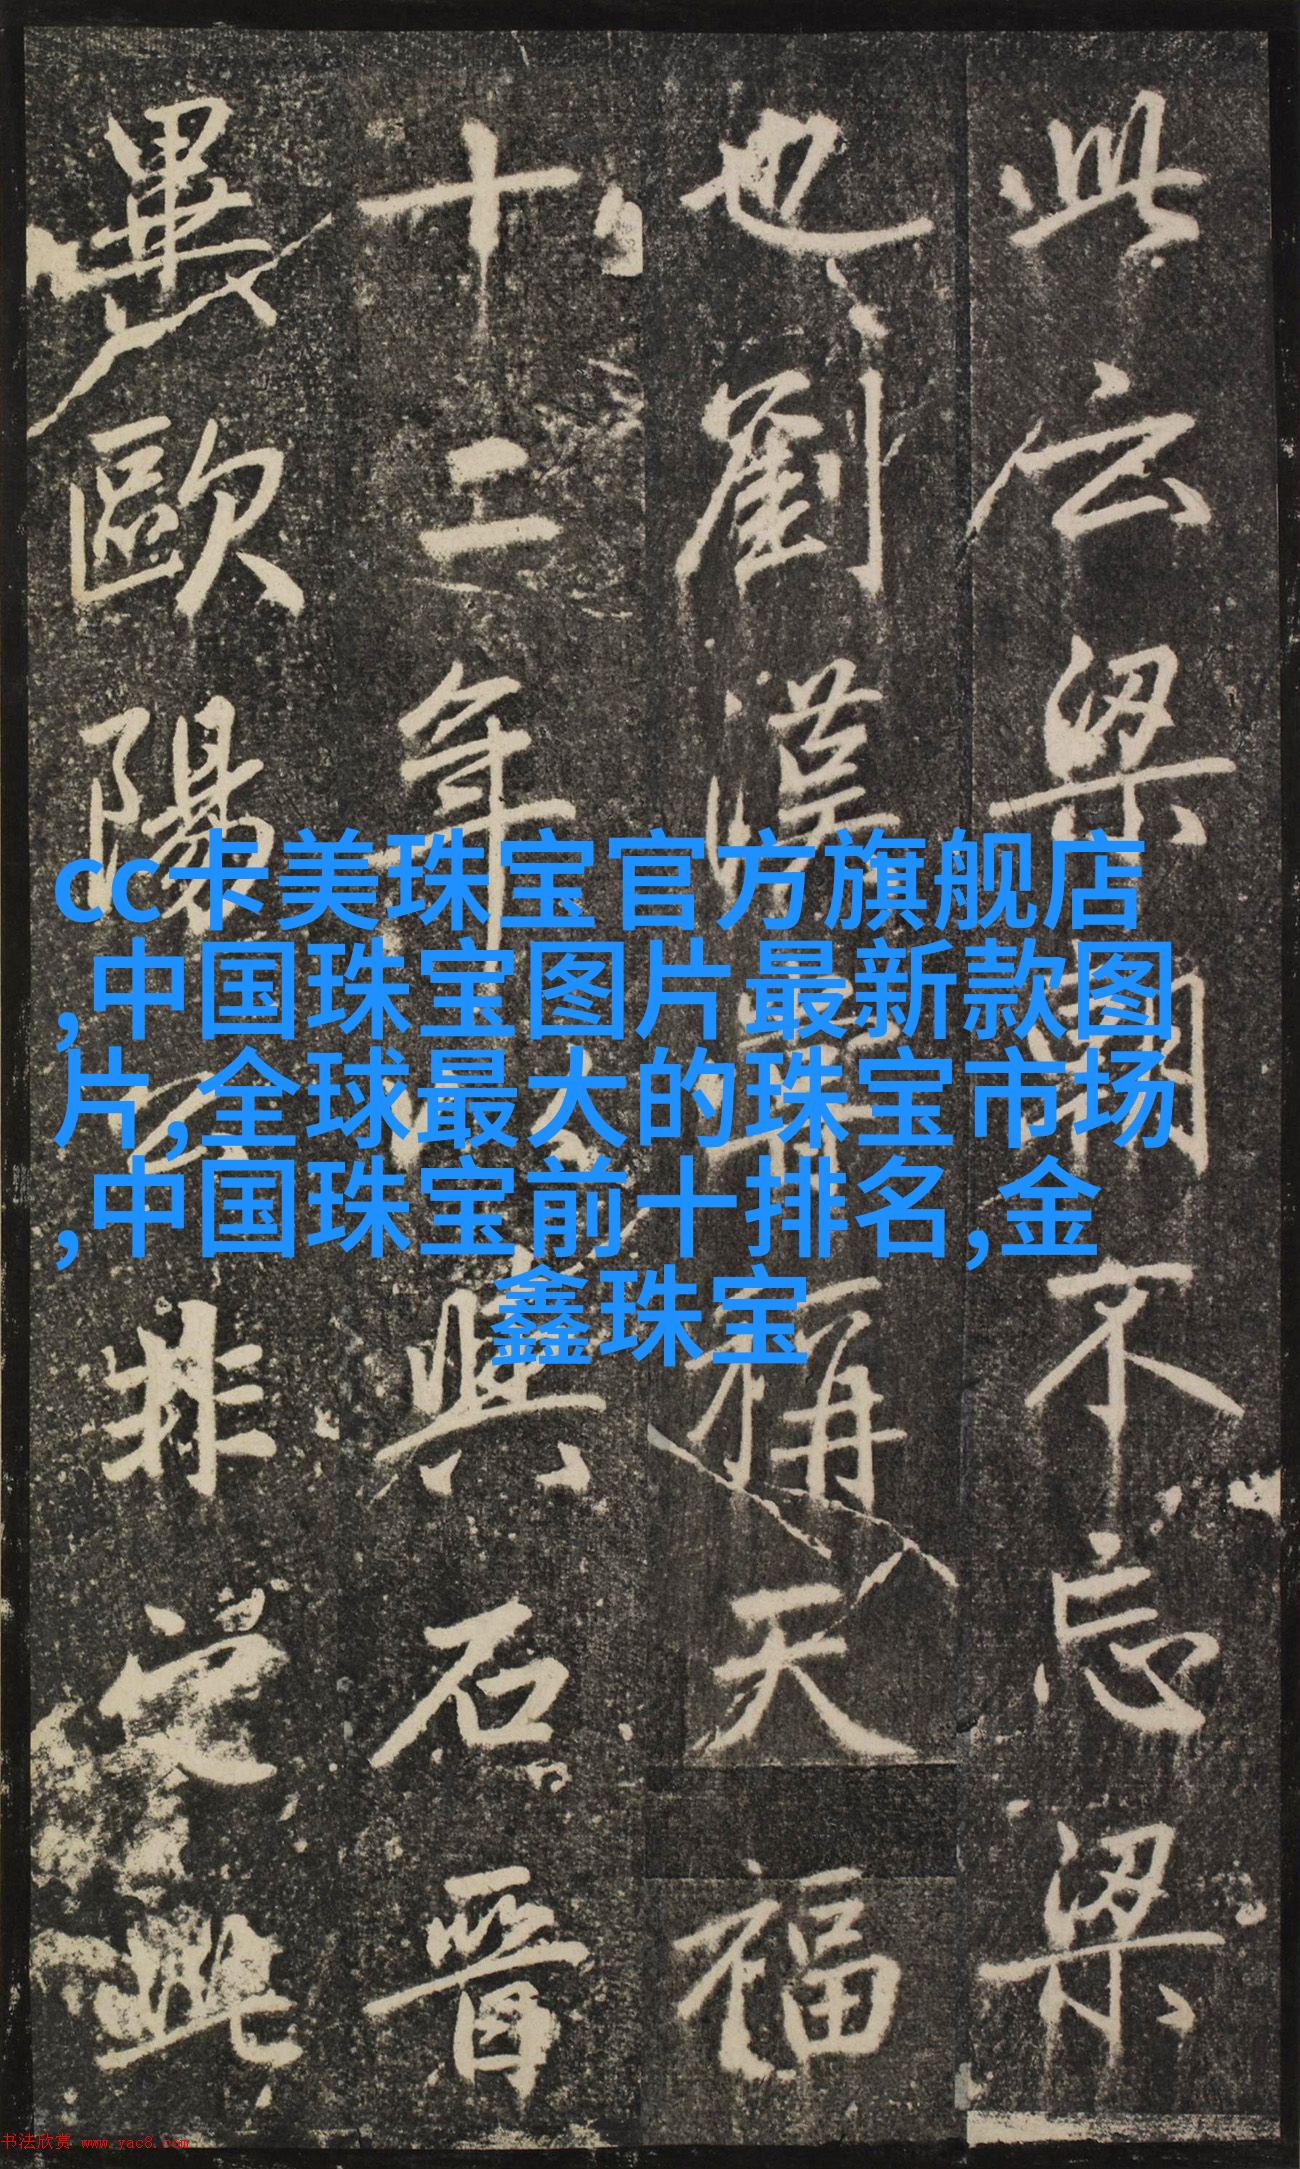 此云梁不忘梁
也劉漢稱天福
十二年與石晉
畢歐陽非此
cc卡美珠宝官方旗舰店
,中国珠宝图片最新款图
片,全球最大的珠宝市场
,中国珠宝前十排名,金
鑫珠宝
书法欣赏 www.yac8.com